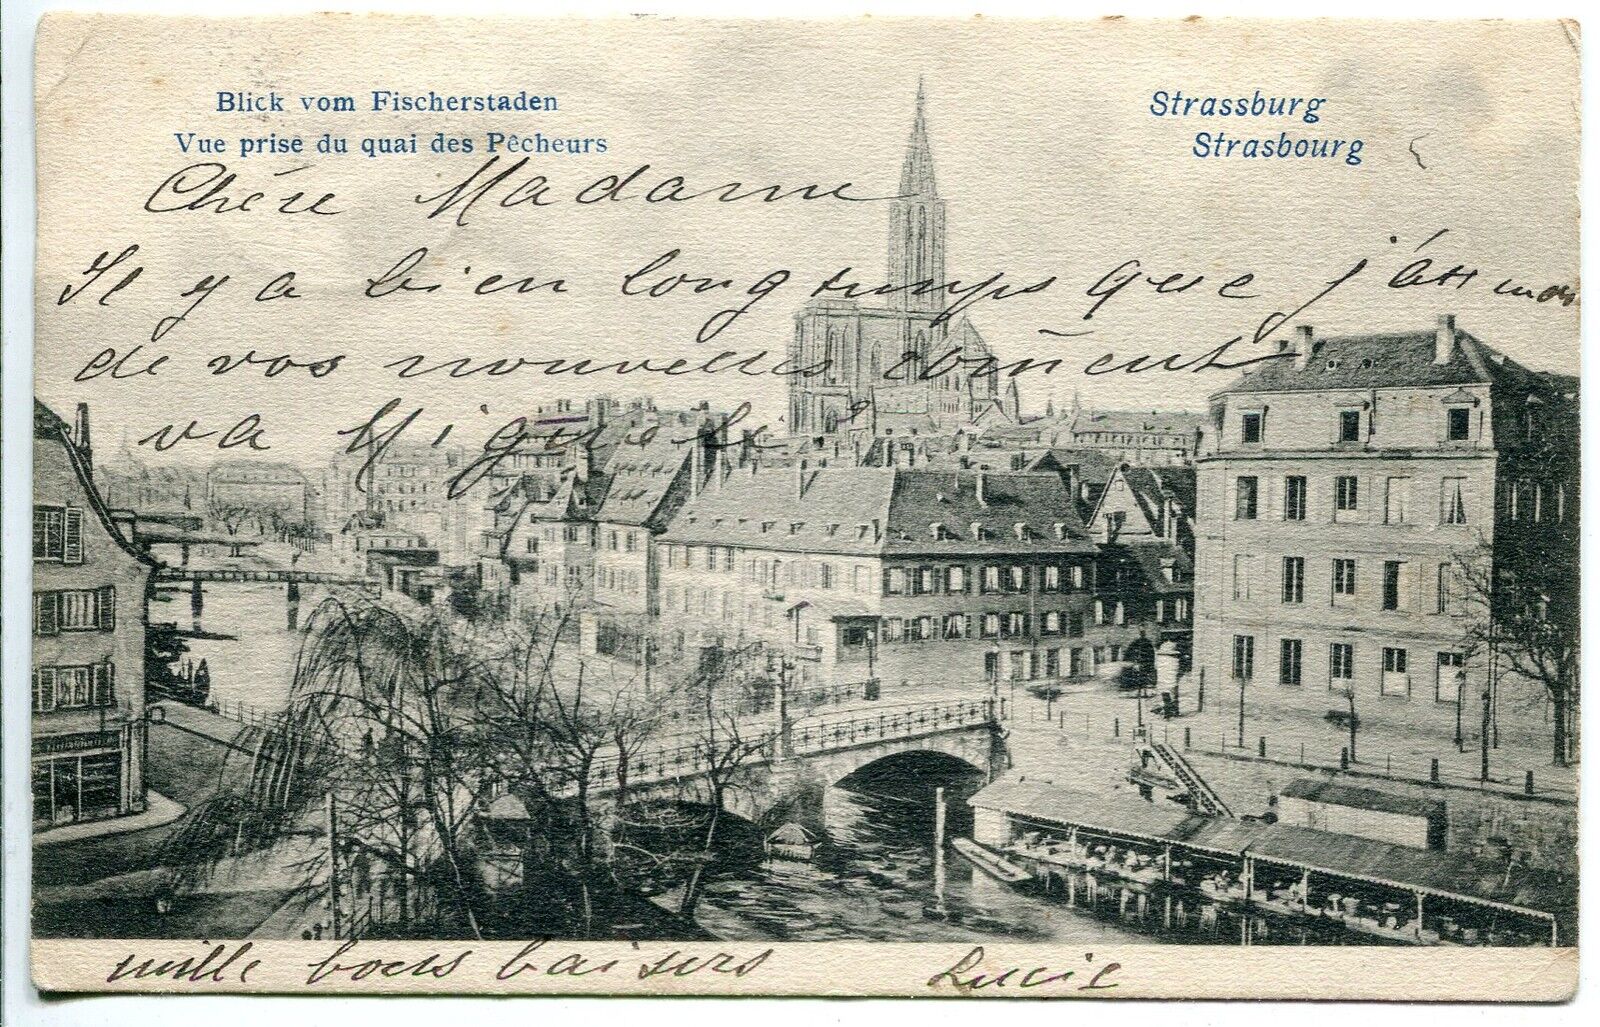 Blick vom Fischerstaden
Vue prise du quai des Pêcheurs
Strassburg
Strasbourg
Chére Madame
Il y a bien longtemps que j'ai
de vos nouvelles com̄ent
va
mille bons baisers Lucie